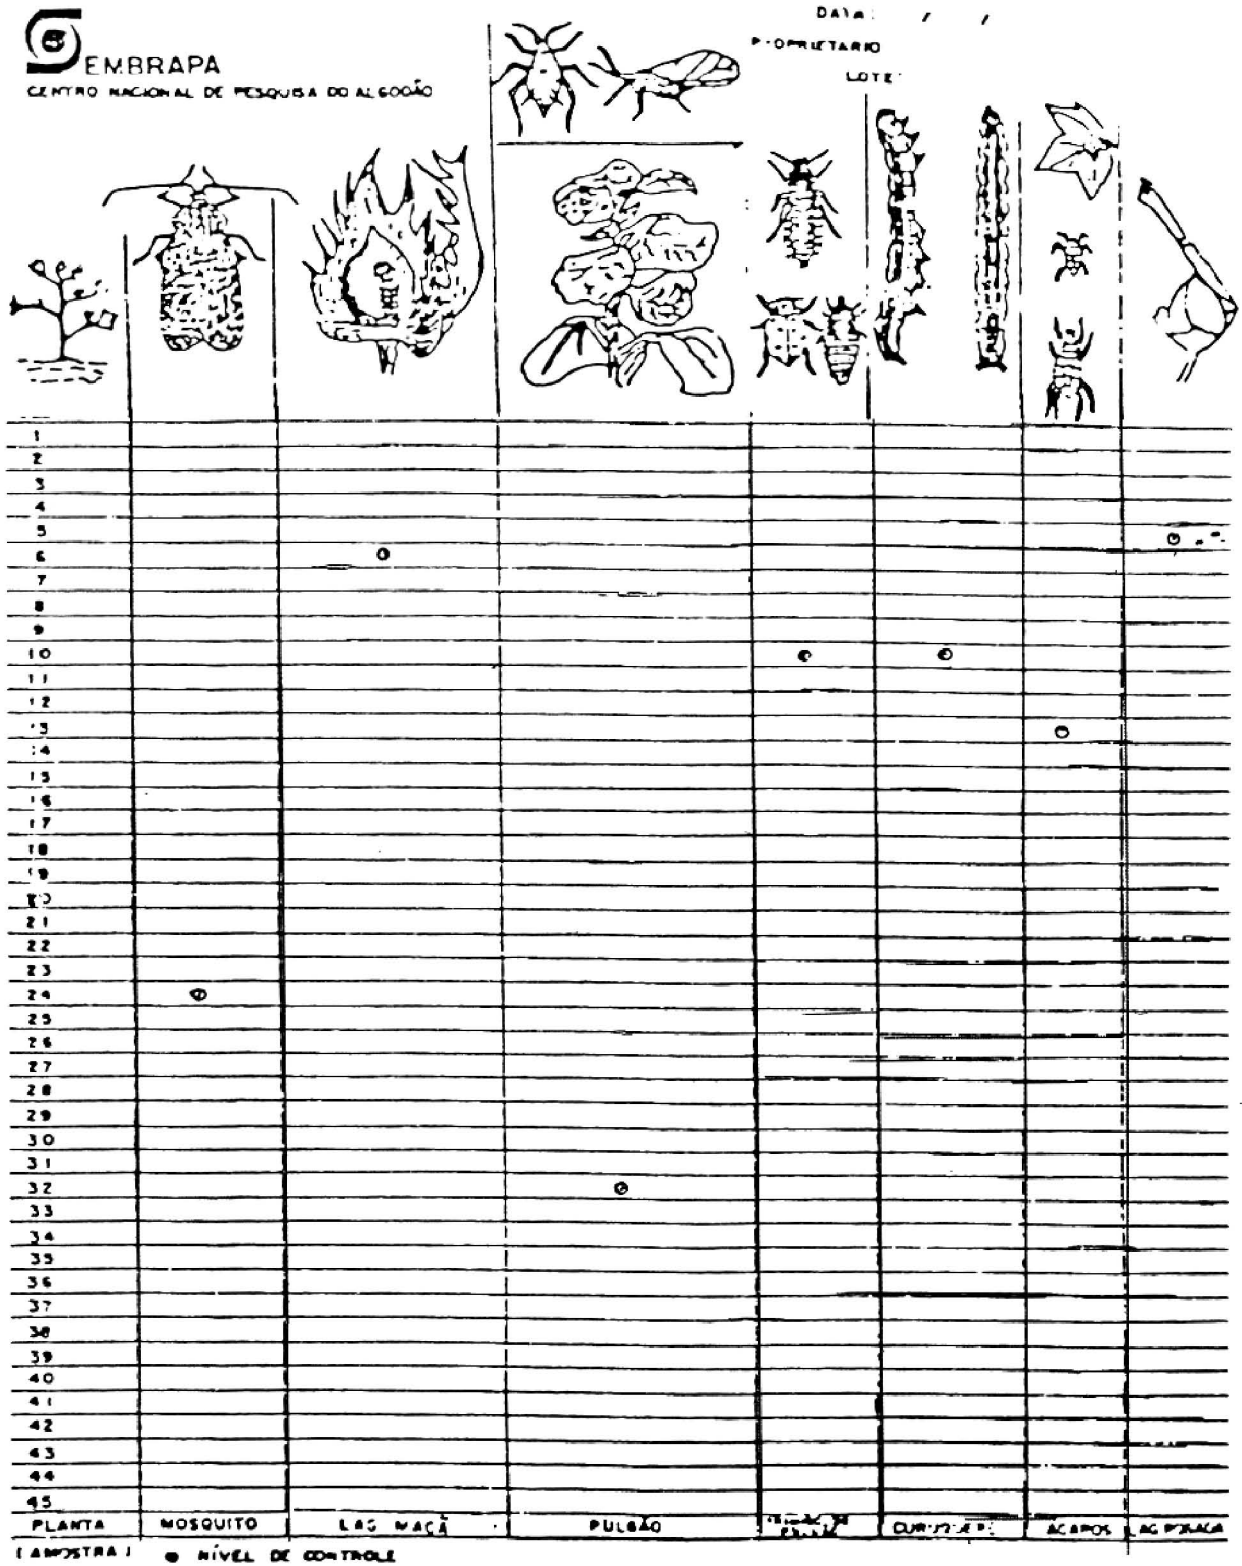 EMBRAPA
CENTRO NACIONAL DE PESQUISA DO ALGODÃO
DATA: / /
PROPRIETARIO
LOTE
1
2
3
4
5
6
7
8
9
10
11
12
13
14
15
16
17
18
19
20
21
22
23
24
25
26
27
28
29
30
31
32
33
34
35
36
37
38
39
40
41
42
43
44
45
PLANTA MOSQUITO LAG MAÇÃ PULGÃO ACAROS LAG ROSADA
(AMOSTRA) NÍVEL DE CONTROLE